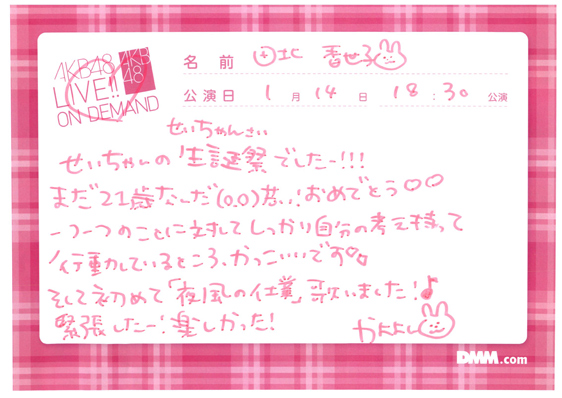 AKB48
LIVE!!
ON DEMAND
AKB
48
名前 田北 香世子
公演日 1月14日 18:30 公演
せいちゃんさい
せいちゃんの生誕祭でしたー!!!
まだ21歳なんだ(o_o)若い!おめでとう♡♡
一つ一つのことに対してしっかり自分の考え持って
行動しているところ、かっこいいです♡。
そして初めて「夜風の仕業」歌いました!♪
緊張したー!楽しかった!
かんよし
DMM.com